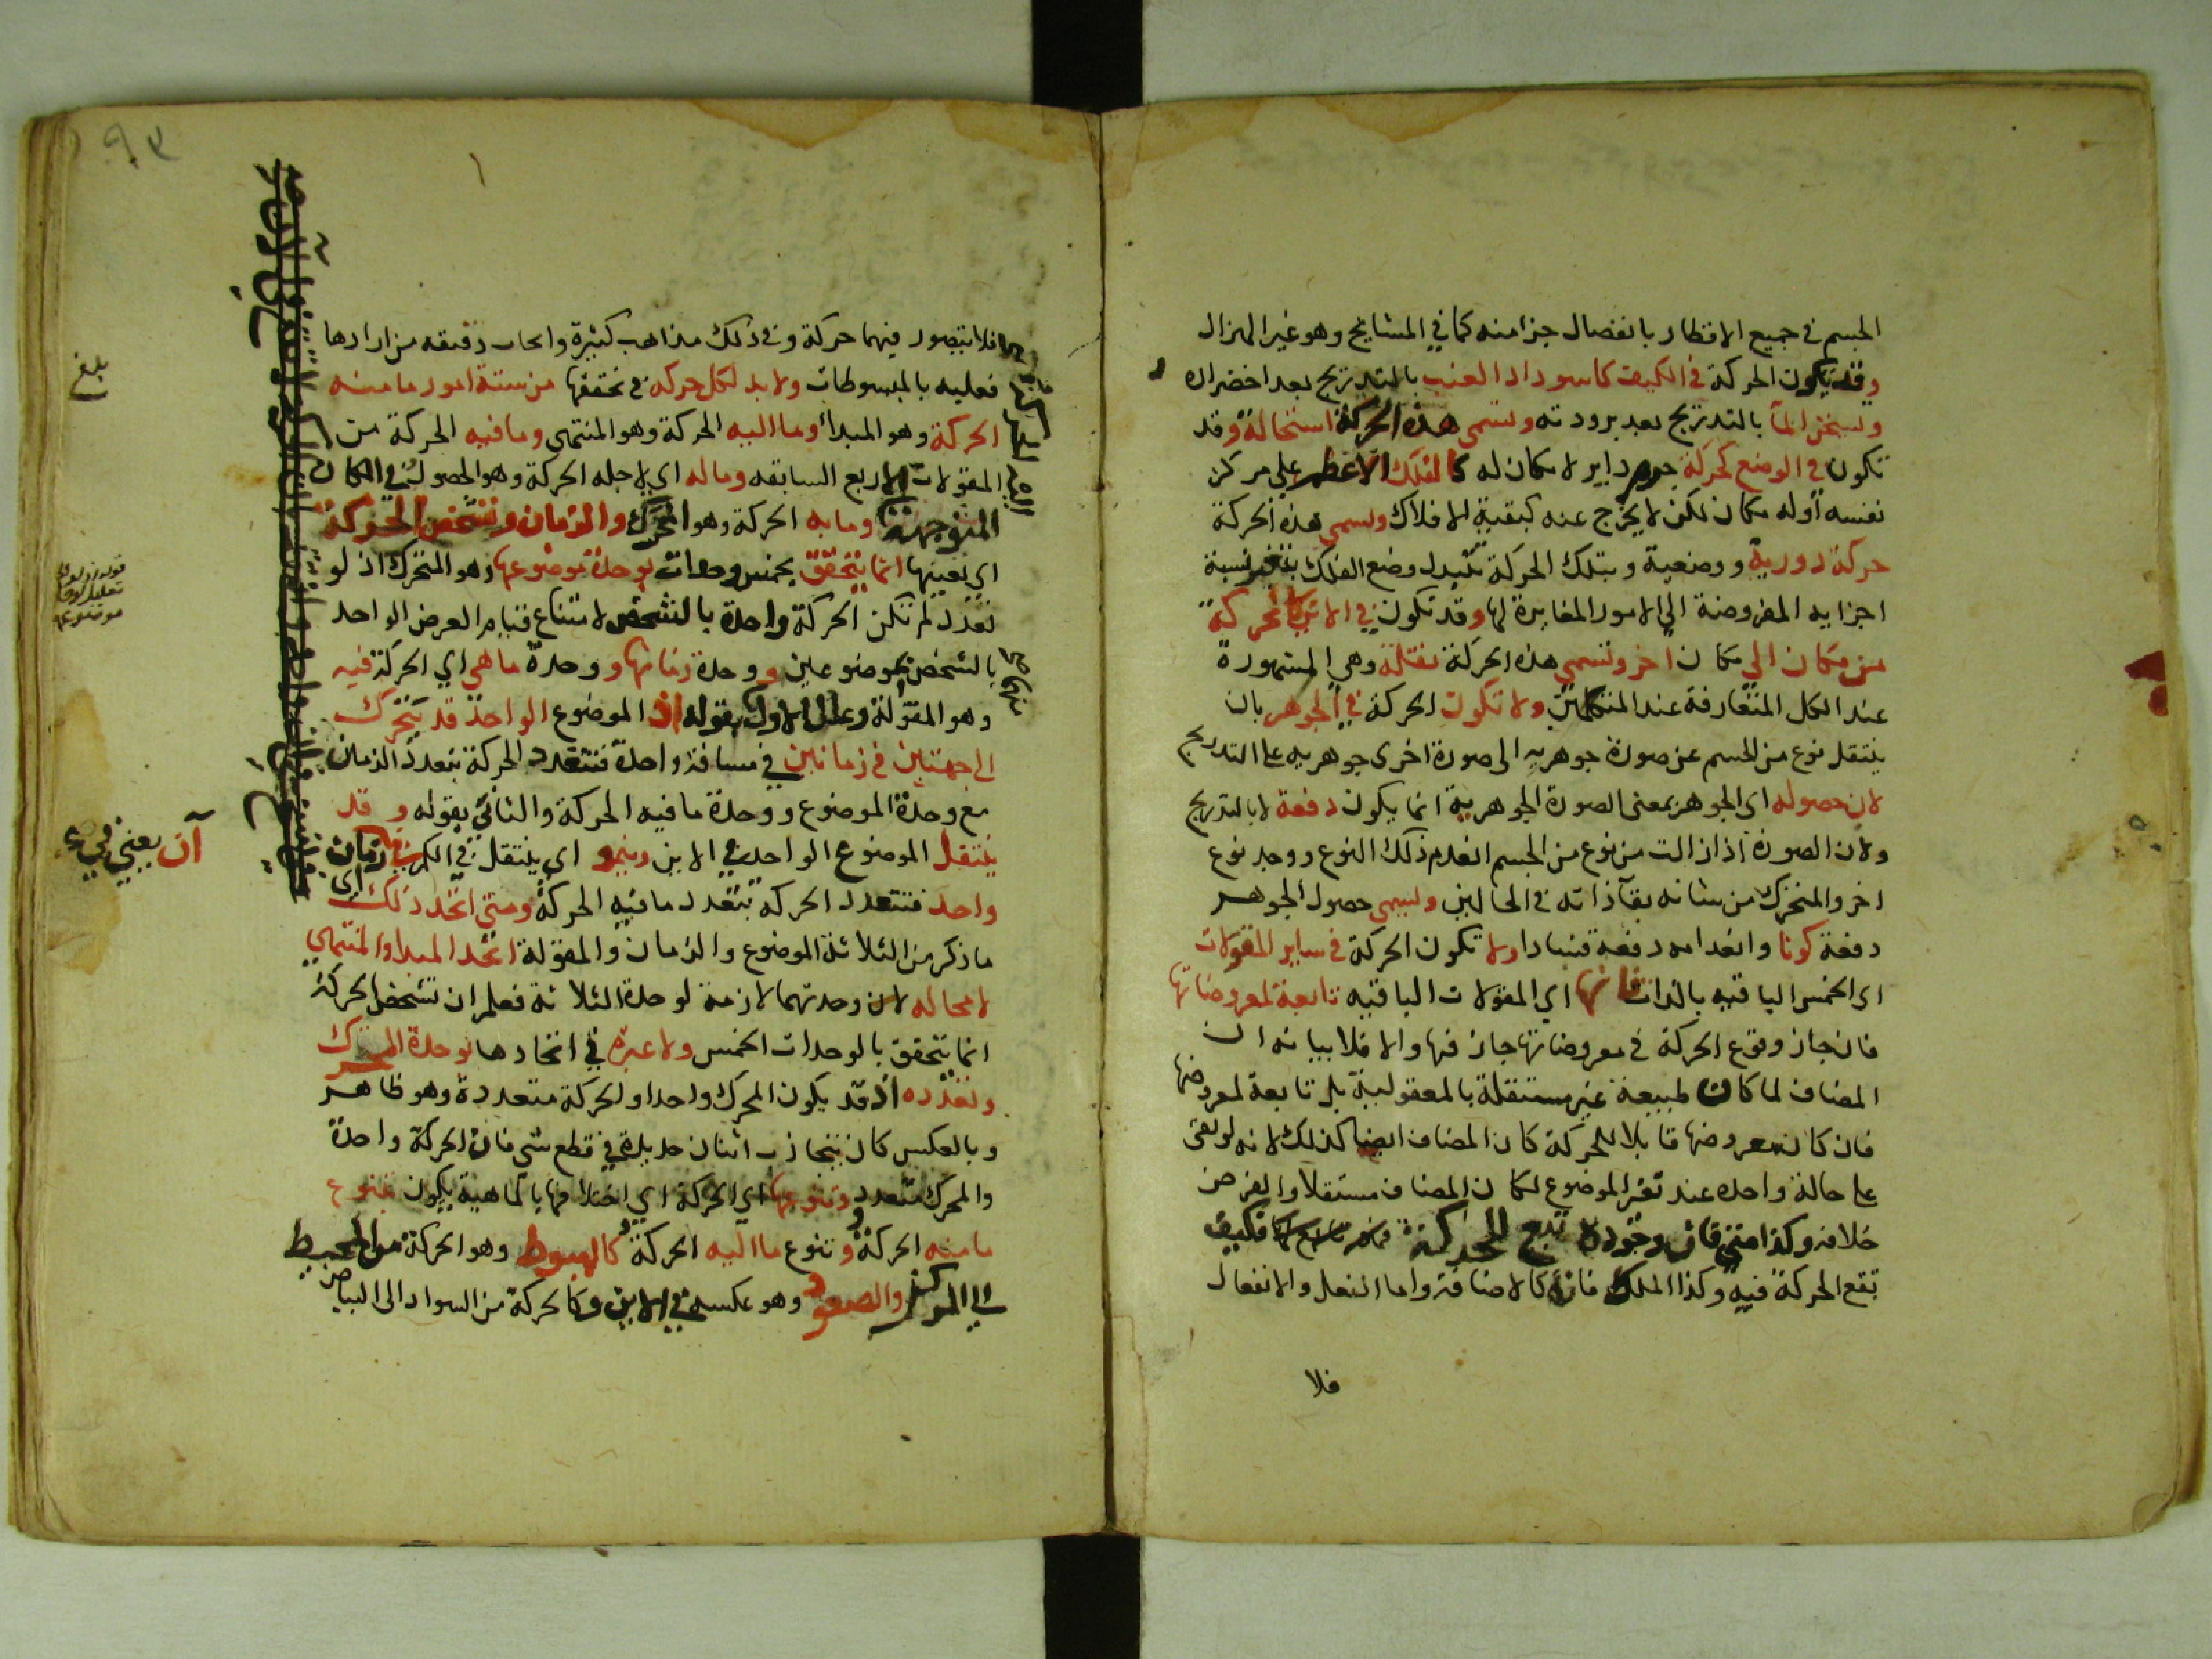 الجسم في جميع الاقطار بانفصال جزا منه كما في المشايخ وهو غير الهزال
وقد تكون الحركة في الكيف كاسوداد العنب بالتدريج بعد اخضراره
وتسخن المآ بالتدريج بعد برودته وتسمي هذه الحركة استحالة وقد
تكون في الوضع كحركة جرم داير لا مكان له كالفلك الاعظم علي مركز
نفسه أوله مكان لكن لا يخرج عنه كبقية الافلاك وتسمي هذه الحركة
حركة دورية ووضعية وبتلك الحركة تتبدل وضع الفلك بتغير نسبة
اجزايه المفروضة الي الامور المغايرة لها وقد تكون في الاين كالحركة
من مكان الي مكان اخر وتسمي هذه الحركة نقلة وهي المشهورة
عند الكل المتعارفة عند المتكلمين ولا تكون الحركة في الجوهر بان
ينتقل نوع من الجسم عن صورة جوهريه الى صورة اخرى جوهريه على التدريج
لان حصوله اى الجوهر بمعنى الصورة الجوهرية انما يكون دفعة لا بالتدريج
ولان الصورة اذا زالت من نوع من الجسم انعدم ذلك النوع ووجد نوع
اخر والمتحرك من شانه بقآ ذاته في الحالين وليسمي حصول الجوهر
دفعة كونا وانعدامه دفعة فسادا ولا تكون الحركة في ساير المقولات
اى الخمس الباقيه بالذات فانها اي المقولات الباقيه تابعة لمعروضاتها
فان جاز وقوع الحركة في معروضاتها جاز فيها والا فلا بيانه ان
المضاف لما كان طبيعة غير مستقلة بالمعقولية بل تابعة لمعروضها
فان كان معروضها قابلا للحركة كان المضاف ايضا كذلك لانه لو بقى
على حالة واحده عند تغير الموضوع لكان المضاف مستقلا والفرض
خلافه وكذا متى فان وجوده تبع للحركة فكيف
تقع الحركة فيه وكذا الملك فانه كالاضافة واما الفعل والانفعال
فلا
فلا يتصور فيهما حركة وفي ذلك مذاهب كثيرة وابحاث دقيقه من ارادها
فعليه بالمبسوطات ولا بد لكل حركه في تحققها من ستة امور ما منه
الحركة وهو المبدأ وما اليه الحركة وهو المنتهى وما فيه الحركة من
المقولات الاربع السابقه وما له اي لاجله الحركة وهو الحصول في المكان
المتوجه وما به الحركة وهو المحرك والزمان وتشخص الحركة
اي تعينها انما يتحقق بخمس وحدات بوحدة موضوعها وهو المتحرك اذ لو
تعدد لم تكن الحركة واحدة بالشخص لامتناع قيام العرض الواحد
بالشخص بموضوعين ووحدة زمانها ووحدة ما هي اي الحركة فيه
وهو المقولة وعلل الاول بقوله اذ الموضوع الواحد قد يتحرك
الى جهتين في زمانين في مسافة واحدة فتتعدد الحركة بتعدد الزمان
مع وحدة الموضوع ووحدة ما فيه الحركة والثاني بقوله وقد
ينتقل الموضوع الواحد في الاين وينمو اي ينتقل في الكم في زمان
واحد فتتعدد الحركة بتعدد ما فيه الحركة ومتى اتحد ذلك اى
ما ذكر من الثلاثة الموضوع والزمان والمقولة اتحد المبدا والمنتهي
لا محاله لان وحدتهما لازمة لوحدة الثلاثة فعلم ان تشخص الحركة
انما يتحقق بالوحدات الخمس ولا عبرة في اتحادها بوحدة المحرك
وتعدده اذ قد يكون المحرك واحدا والحركة متعددة وهو ظاهر
وبالعكس كان يتجاذب اثنان حديدة في قطع شي فان الحركة واحدة
والمحرك متعدد وتنوعها اي الحركة اي اختلافها بالماهية يكون بتنوع
ما منه الحركة وتنوع ما اليه الحركة كالهبوط وهو الحركة من المحيط
الي المركز والصعود وهو عكسه في الاين وكالحركة من السواد الى البياض
بلغ
آن يعني في